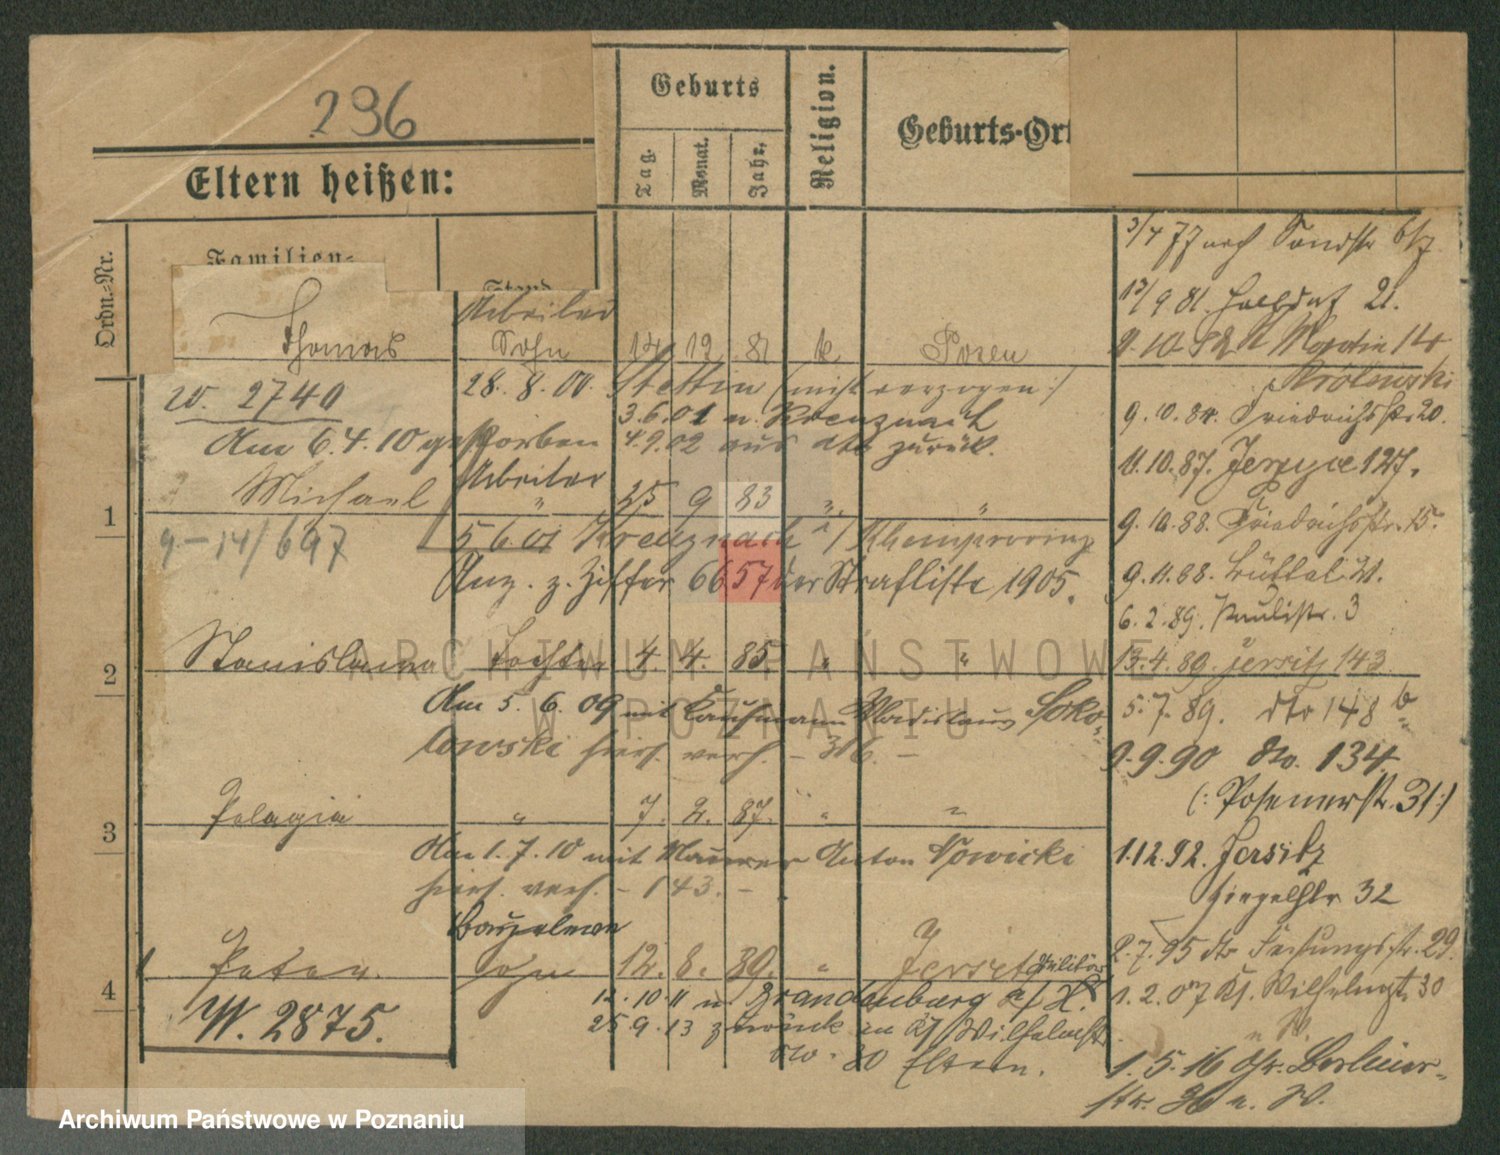 296
Eltern heißen:
Geburts
Tag.
Monat.
Jahr.
Religion.
Geburts-Ort
Ordn.-Nr.
Familien-
Stand
3/4 77 nach
13/9 81. 21.
Thomas Arbeiter Sohn 14 12 81 k Posen
9.10.82 St Martin 14
w. 2740 28.8.00. Stettin (nicht verzogen:)
3.6.01 n. Kreuznach
9.10.84. Friedrichstr. 20.
Am 6.4.10 gestorben 4.9.02 aus dto zurück.
11.10.87. Jerzyce 127.
1 Michael Arbeiter " 25 9 83 " "
9.10.88. Friedrichstr. 15.
9-14/697 5 6 01 Kreuznach / Rheinprovinz
Anz. z. Ziffer 6657 der Strafliste 1905.
9.11.88.
6.2.89. Paulistr. 3
2 Stanislawa Tochter 4. 4. 85. " "
13.4.89. Jersitz 143
Am 5.6.09 mit Kaufmann Wladislaus Soko-
5.7.89. dto 148 b
lowski hier verh. - 316. -
1.9.90 dto. 134
(: Posenerstr. 31 :)
3 Pelagia " 7. 2. 87. " "
Am 1.7.10 mit Maurer Anton Nowicki
1.12.92. Jersitz
hier verh. - 143. -
Ziegelstr 32
4 Peter. Sohn 12. 8. 89. " Jersitz Militär
2.7.95 dto Festungsstr. 29.
W. 2875. 12.10.11 n. Brandenburg a/H.
1.2.07 Ks. Wilhelmstr 30
25.9.13 zurück in Ks/Wilhelmstr.
30 Eltern.
1.5.16 Gr. Berliner-
str.
ARCHIWUM PAŃSTWOWE
W POZNANIU
Archiwum Państwowe w Poznaniu